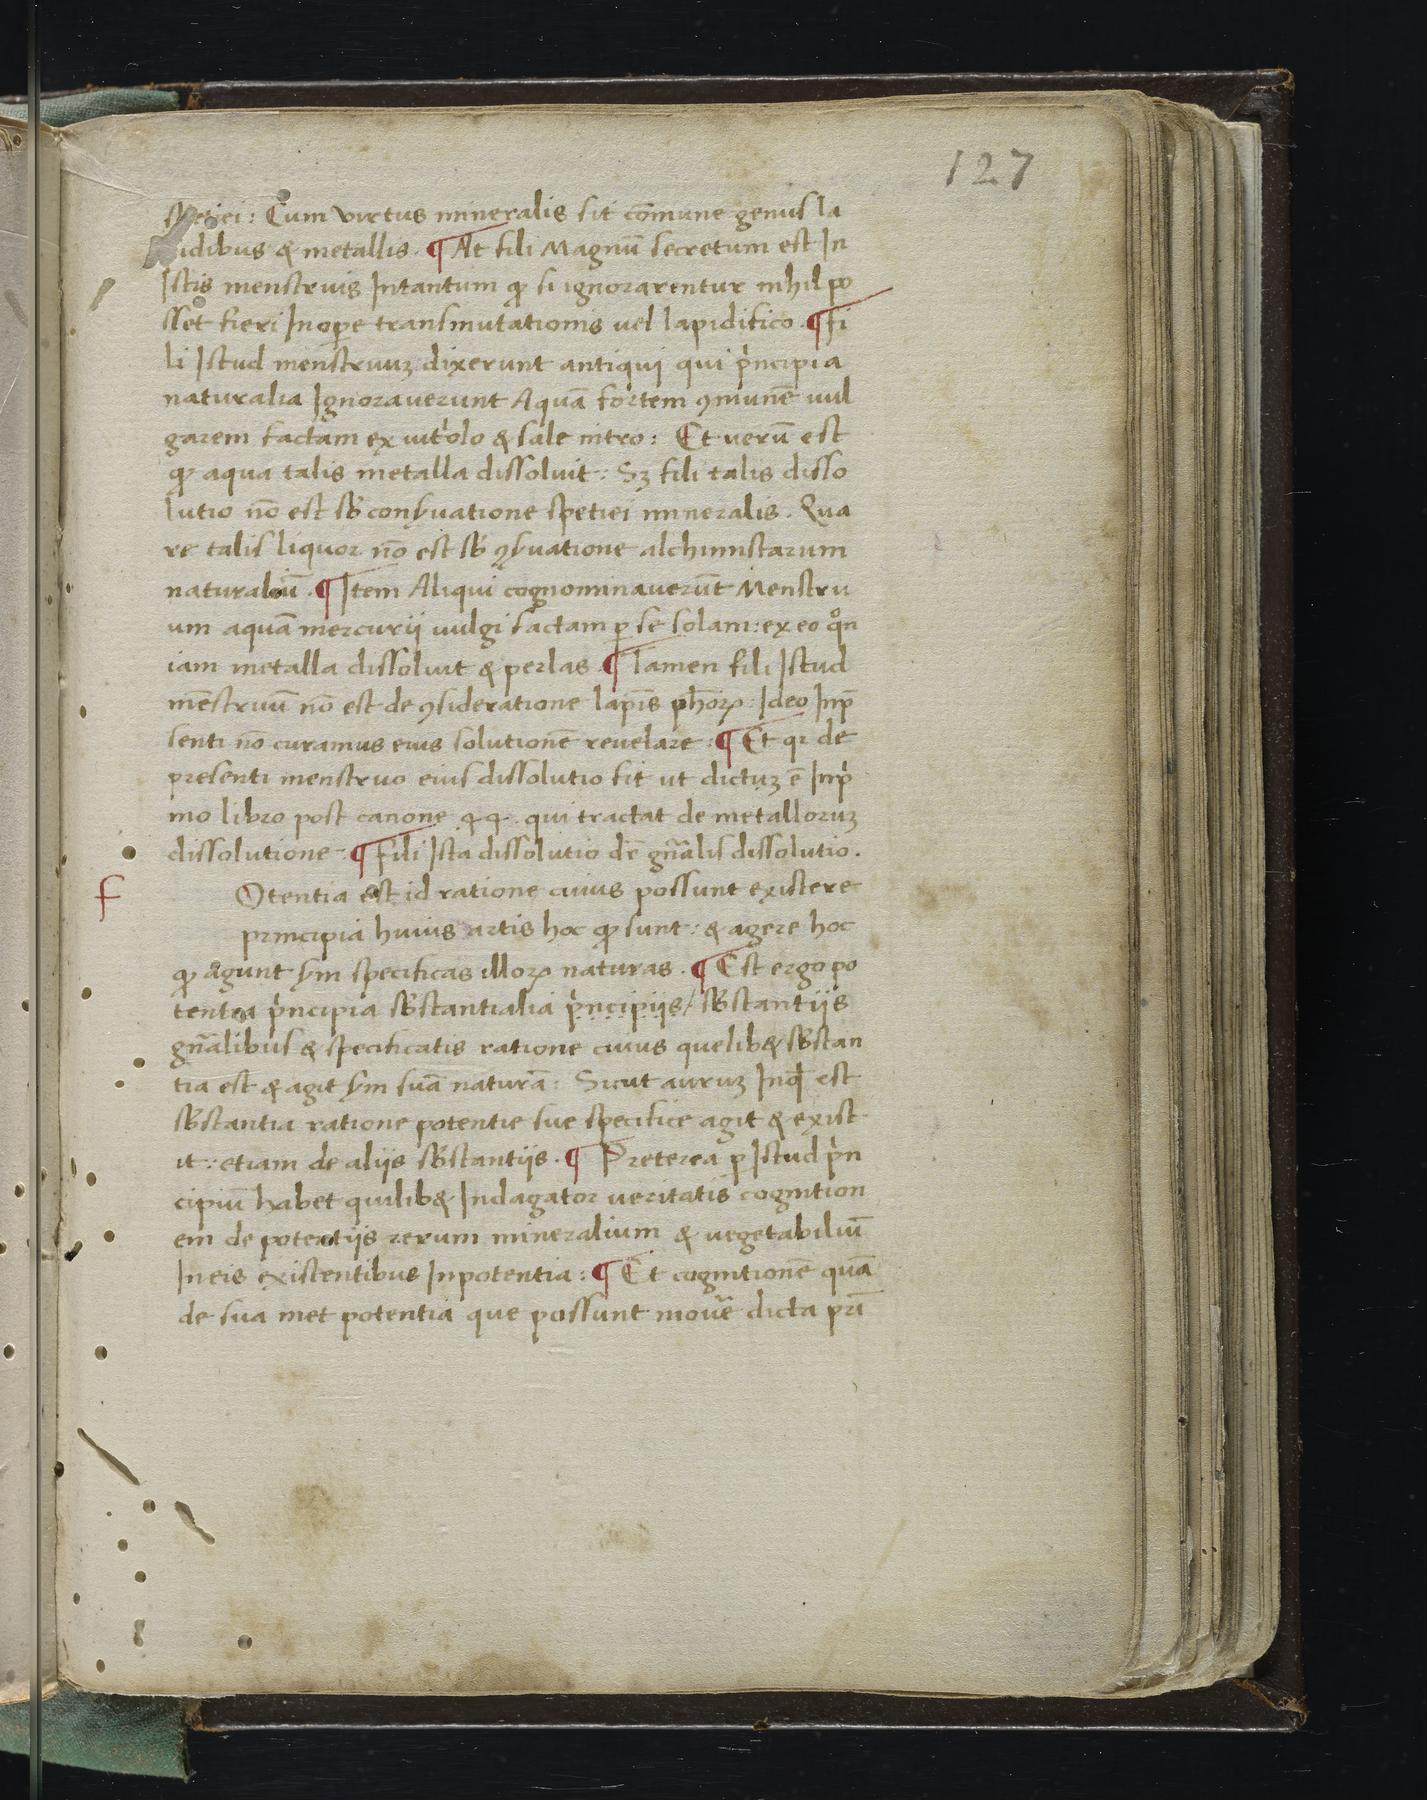 127
spetiei: Cum virtus mineralis sit cōmune genus la
pidibus & metallis. ¶ At fili Magnū secretum est In
Istis menstruis Intantum ꝙ si ignorarentur nihil po
sset fieri Inoꝑe transmutationis uel lapidifico. ¶ fi
li Istud menstruuꝫ dixerunt antiqui qui pͥncipia
naturalia Ignorauerunt Aquā fortem ꝯmunē uul
garem factam ex uitͥolo & sale nitro: Et uerū est
ꝙ aqua talis metalla dissoluit: Sꝫ fili talis disso
lutio nō est sb̄ conẜuatione spetiei mineralis. Qua
re talis liquor nō est sb̄ ꝯẜuatione alchimistarum
naturaliū. ¶ Item Aliqui cognominauerūt Menstru
um aquā mercurij uulgi factam ꝑ se solam: ex eo qͦn
iam metalla dissoluit & perlas. ¶ Tamen fili Istud
mēstruū nō est de ꝯsideratione lapīs ph̄oꝝ: Ideo Inp̄
senti nō curamus eius solutionē reuelare: ¶ Et qꝛ de
presenti menstruo eius dissolutio fit ut dictuꝫ ē Inpͥ
mo libro post canone 44. qui tractat de metalloruꝫ
dissolutione. ¶ Fili Ista dissolutio dē gn̄alis dissolutio.
f
Otentia est id ratione cuius possunt existere
principia huius artis hoc ꝙ sunt: & agere hoc
ꝙ agunt ẜm specificas illoꝝ naturas. ¶ Est ergo po
tentia pͥncipia sb̄stantialia pͥncipijs/ sb̄stantijs
gn̄alibus & specificatis ratione cuius quelib& sb̄stan
tia est & agit ẜm suā naturā: Sicut auruꝫ Inqͣ est
sb̄stantia ratione potentie sue specifice agit & exist
it: etiam de alijs sb̄stantijs. ¶ Preterea ꝑ Istud pͥn
cipiū habet quilib& Indagator ueritatis cognition
em de potentijs rerum mineralium & uegetabiliū
Ineis existentibus Inpotentia: ¶ Et cognitionē quā
de sua met potentia que possunt mouē dicta pri